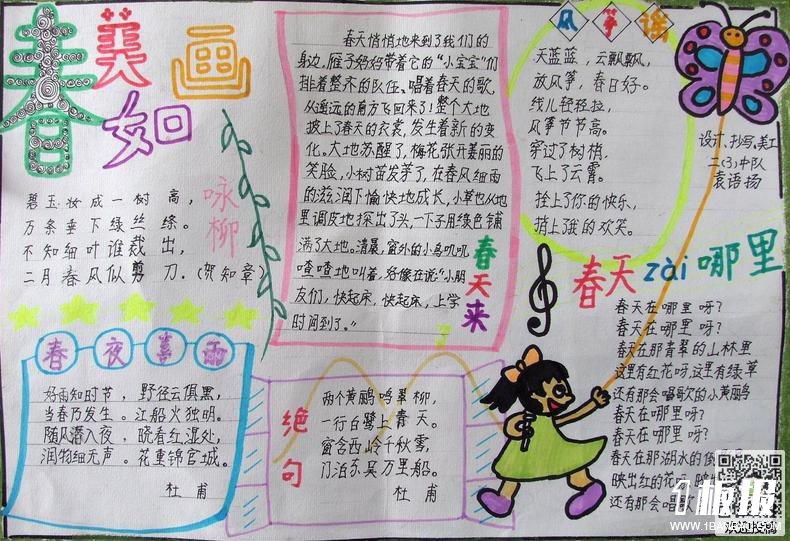 春美如画
碧玉妆成一树高，
万条垂下绿丝绦。
不知细叶谁裁出，
二月春风似剪刀．(贺知章)
咏柳
春夜喜雨
好雨知时节，野径云俱黑，
当春乃发生。江船火独明。
随风潜入夜，晓看红湿处，
润物细无声。花重锦官城。
杜甫
春天悄悄地来到了我们的
身边，雁子妈妈带着它的“小宝宝”们
排着整齐的队伍、唱着春天的歌，
从遥远的南方飞回来了！整个大地
披上了春天的衣裳，发生着新的变
化。大地苏醒了，梅花张开美丽的
笑脸，小树苗发芽了，在春风细雨
的滋润下愉快地成长，小草也从地
里调皮地探出了头，一下子用绿色铺
满了大地。清晨，窗外的小鸟叽叽
喳喳地叫着，好像在说：“小朋
友们，快起床，快起床，上学
时间到了。”
春天来了
绝句
两个黄鹂鸣翠柳，
一行白鹭上青天。
窗含西岭千秋雪，
门泊东吴万里船。
杜甫
风筝谣
天蓝蓝，云飘飘，
放风筝，春日好。
线儿轻轻拉，
风筝节节高。
穿过了树梢，
飞上了云霄。
拴上了你的快乐，
捎上了我的欢笑。
设计、抄写、美工
二(3)中队
袁语扬
春天zài哪里
春天在哪里呀？
春天在哪里呀？
春天在那青翠的山林里
这里有红花呀这里有绿草
还有那会唱歌的小黄鹂
春天在哪里呀？
春天在哪里呀？
春天在那湖水的倒
映出红的花
还有那会唱
1板报
WWW.1BANBAO.COM